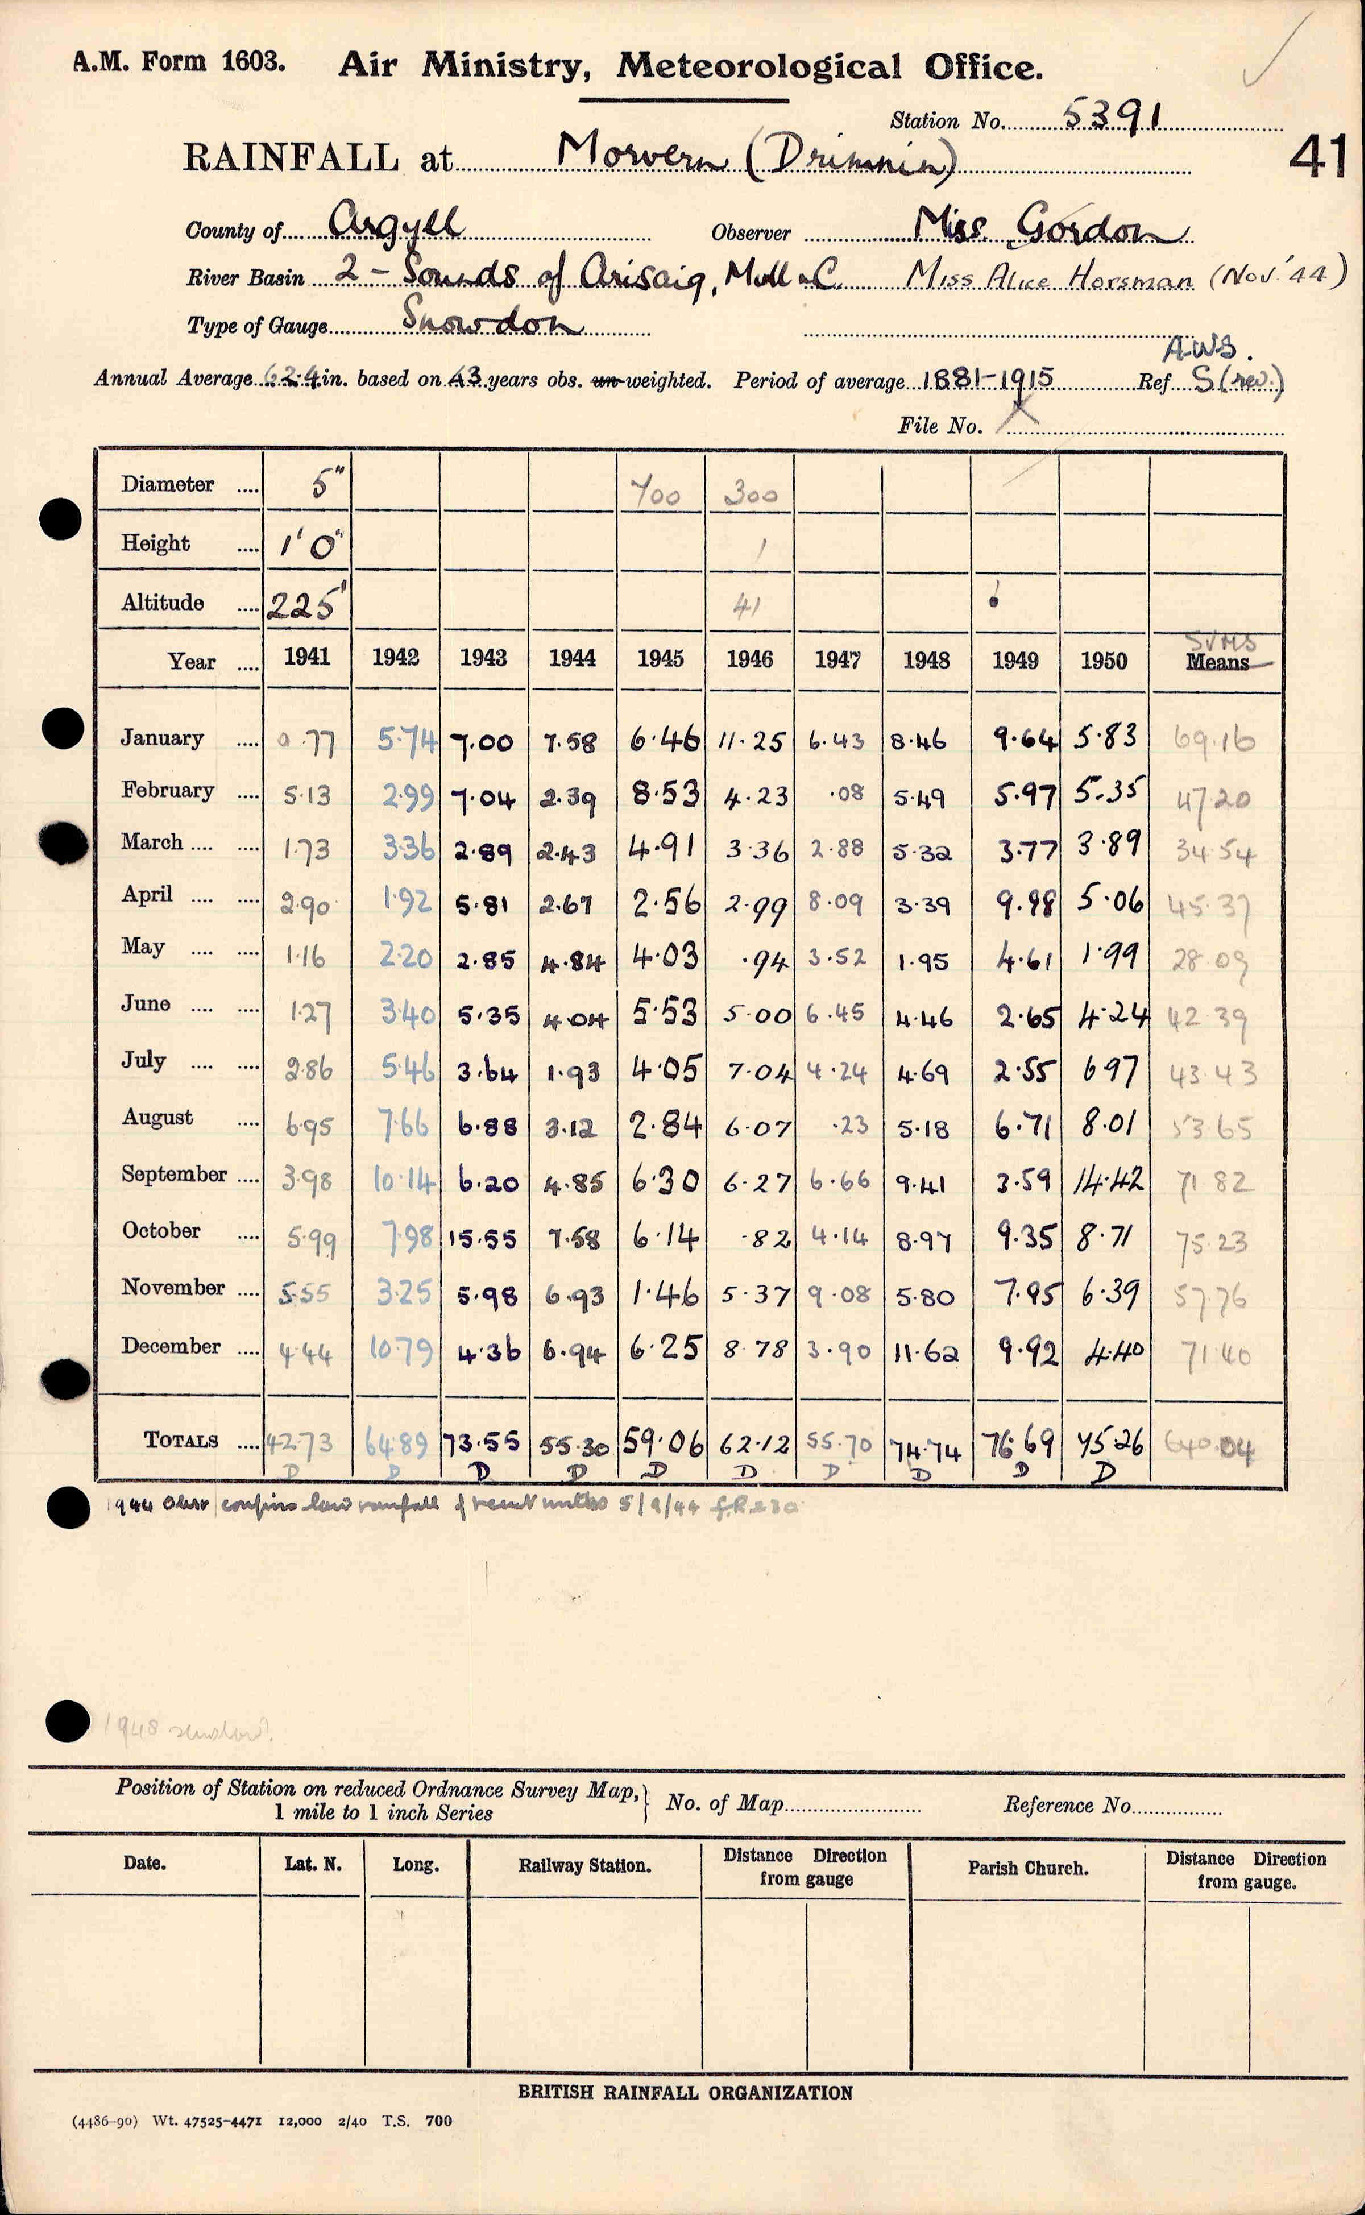 A.M. Form 1603. Air Ministry, Meteorological Office.
Station No. 5391
RAINFALL at Morvern (Drimnin)
41
County of Argyll Observer Miss Gordon
River Basin 2 - Sounds of Arisaig, Mull &C. Miss Alice Horsman (Nov '44)
Type of Gauge Snowdon
A.W.S.
Annual Average 62.4 in. based on 43 years obs. un-weighted. Period of average 1881-1915 Ref S (rev.)
File No. X
Diameter .... 5" 700 300
Height .... 1' 0" 1
Altitude .... 225' 41
SUMS
Year .... 1941 1942 1943 1944 1945 1946 1947 1948 1949 1950 Means
January .... 0.77 5.74 7.00 7.58 6.46 11.25 6.43 8.46 9.64 5.83 69.16
February .... 5.13 2.99 7.04 2.39 8.53 4.23 .08 5.49 5.97 5.35 47.20
March .... .... 1.73 3.36 2.89 2.43 4.91 3.36 2.88 5.32 3.77 3.89 34.54
April .... .... 2.90 1.92 5.81 2.67 2.56 2.99 8.09 3.39 9.98 5.06 45.37
May .... .... 1.16 2.20 2.85 4.84 4.03 .94 3.52 1.95 4.61 1.99 28.09
June .... .... 1.27 3.40 5.35 4.04 5.53 5.00 6.45 4.46 2.65 4.24 42.39
July .... .... 2.86 5.46 3.64 1.93 4.05 7.04 4.24 4.69 2.55 6.97 43.43
August .... 6.95 7.66 6.88 3.12 2.84 6.07 .23 5.18 6.71 8.01 53.65
September .... 3.98 10.14 6.20 4.85 6.30 6.27 6.66 9.41 3.59 14.42 71.82
October .... 5.99 7.98 15.55 7.58 6.14 .82 4.14 8.97 9.35 8.71 75.23
November .... 5.55 3.25 5.98 6.93 1.46 5.37 9.08 5.80 7.95 6.39 57.76
December .... 4.44 10.79 4.36 6.94 6.25 8.78 3.90 11.62 9.92 4.40 71.40
TOTALS .... 42.73 64.89 73.55 55.30 59.06 62.12 55.70 74.74 76.69 75.26 640.04
D D D D D D D D D D
1944 Obsr confirms low rainfall of recent months 5/9/44
1948
Position of Station on reduced Ordnance Survey Map, } No. of Map Reference No.
1 mile to 1 inch Series
Date. Lat. N. Long. Railway Station. Distance Direction from gauge Parish Church. Distance Direction from gauge.
BRITISH RAINFALL ORGANIZATION
(4486-90) Wt. 47525-4471 12,000 2/40 T.S. 700